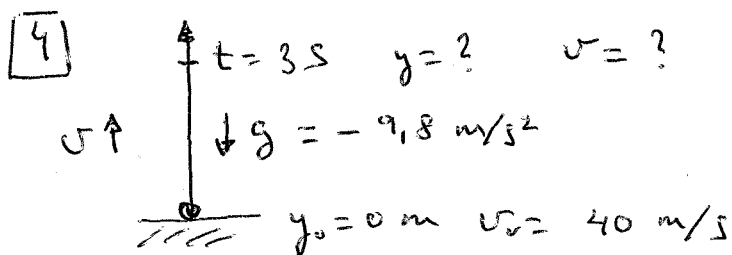 4
t = 3 s y = ? v = ?
v ↑ ↓ g = - 9,8 m/s²
y₀ = 0 m v₀ = 40 m/s